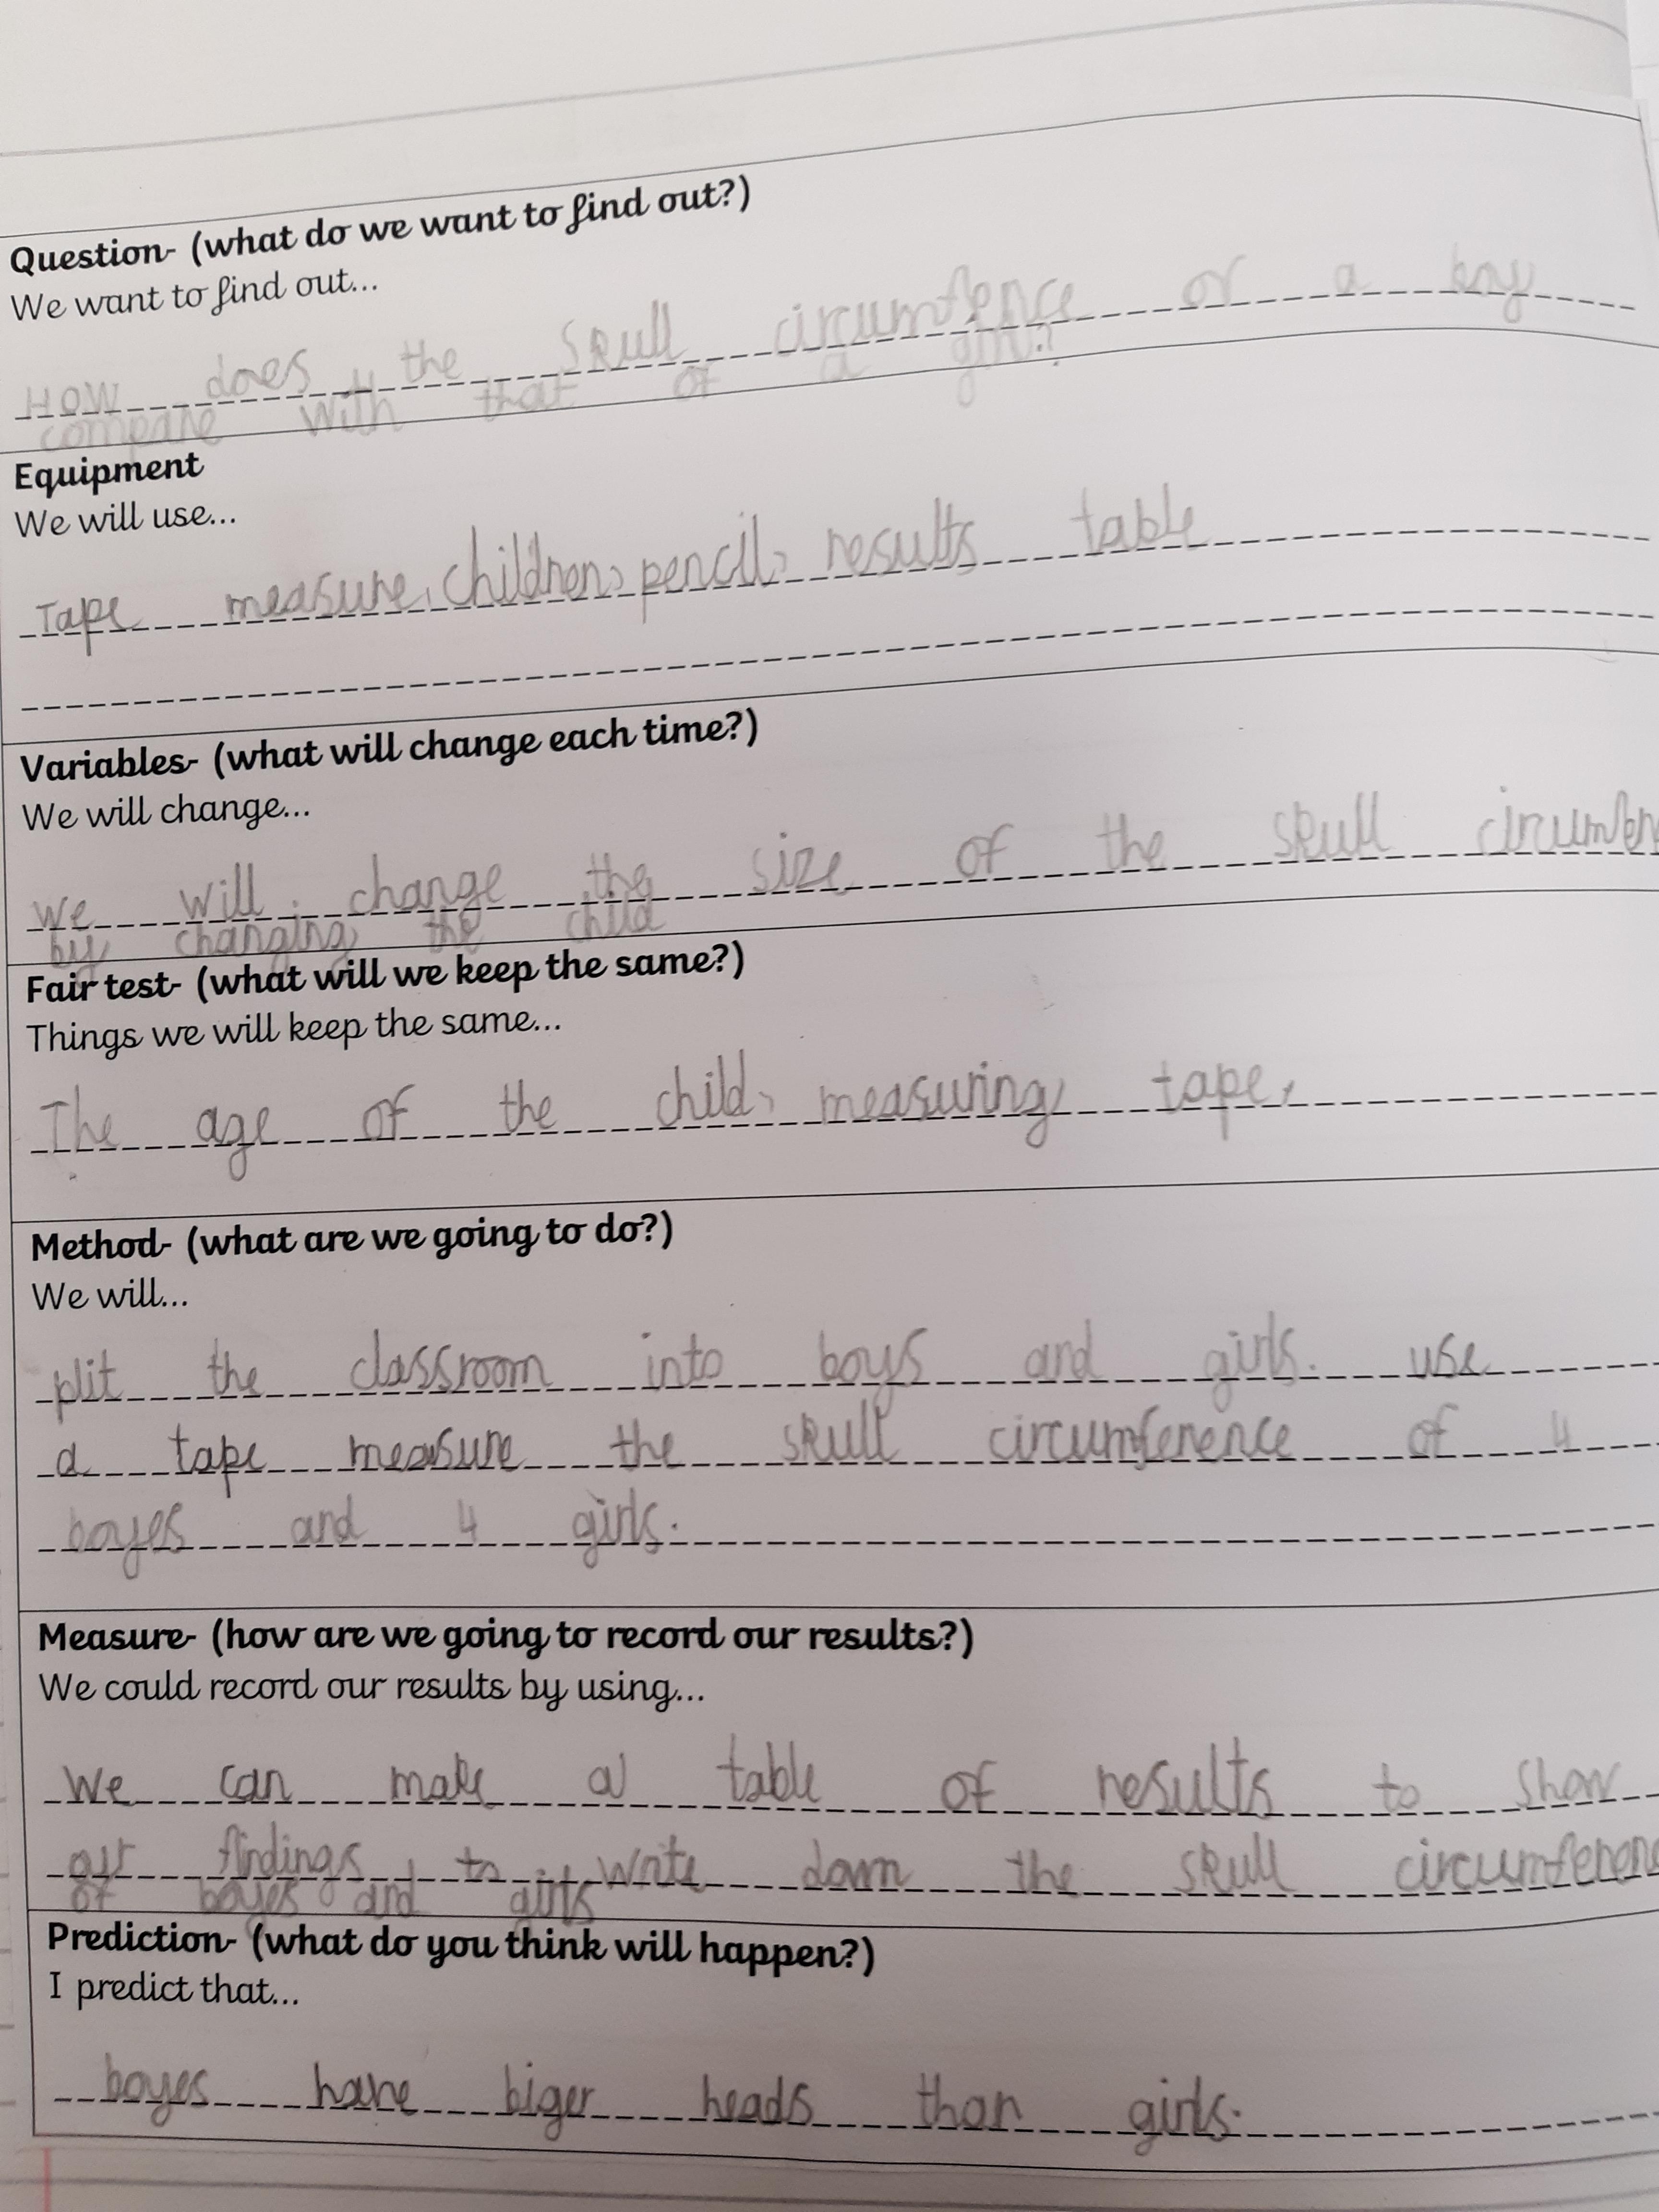 Question- (what do we want to find out?)
We want to find out...
How does the skull circumfence of a boy
compare with that of a girl?
Equipment
We will use...
Tape measure, children, pencil, results table
Variables- (what will change each time?)
We will change...
we will change the size of the skull circumferen
by changing the child
Fair test- (what will we keep the same?)
Things we will keep the same...
The age of the child, measuring tape,
Method- (what are we going to do?)
We will...
plit the classroom into boys and girls. use
a tape measure the skull circumference of 4
boyes and 4 girls.
Measure- (how are we going to record our results?)
We could record our results by using...
We can make a table of results to show
our findings to write down the skull circumferenc
of boyes and girls
Prediction- (what do you think will happen?)
I predict that...
boyes have biger heads than girls.